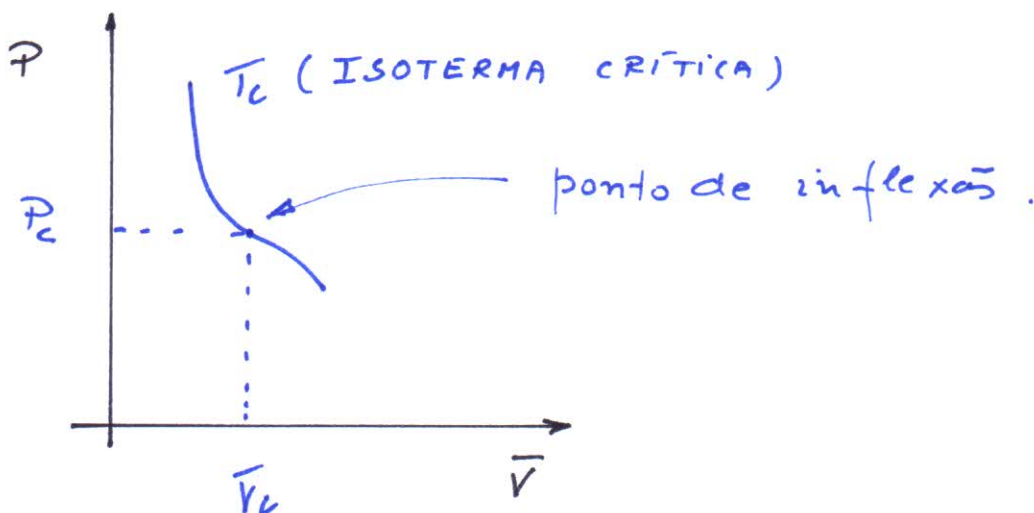 P
T̄c (ISOTERMA CRÍTICA)
ponto de inflexão.
Pc
V̄c
V̄